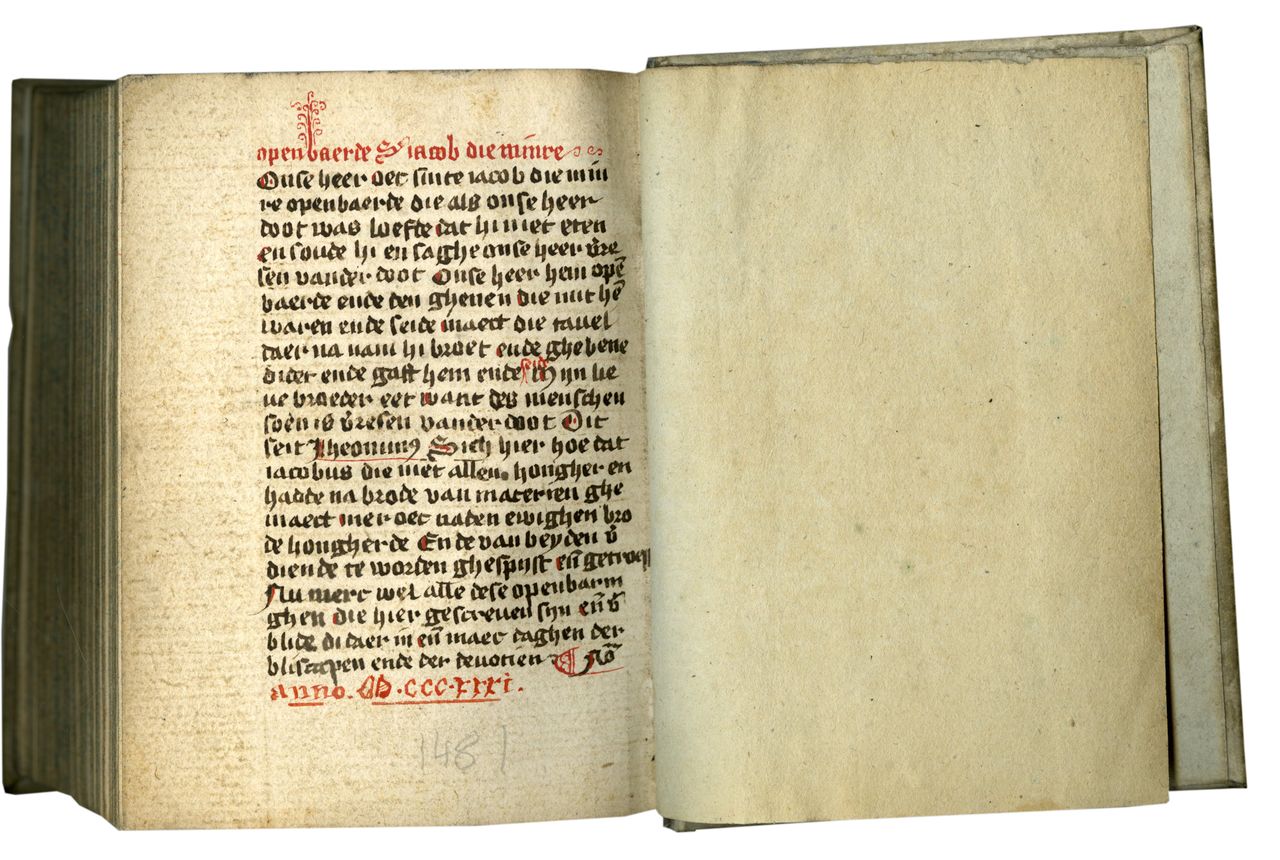 openbaerde S iacob die minre
Onse heer oec sinte iacob die min
re openbaerde die als onse heer
doot was loefte dat hi niet eten
en soude hi en saghe onse heer v̄re
sen vander doot Onse heer hem opē
baerde ende den ghenen die mit hē
waren ende seide maect die tauel
daer na nam hi broet ende ghebene
dider ende gaff hem ende seide Mijn lie
ue broeder eet want des menschen
soēn is v̄resen vander doot Dit
seit Iheronimꝰ Sich hier hoe dat
iacobus die niet allen hongher en
hadde na brode van materien ghe
maect mer oec naden ewighen bro
de hongherde Ende van beyden v̄
diende te worden ghespijst en̄ getroest
Nu merc wel alle dese openbarin
ghen die hier gescreuen sijn en̄ v̄
blide di daer in en̄ maec daghen der
bliscapen ende der deuotien
Anno. M.CCC.XXXI.
1481